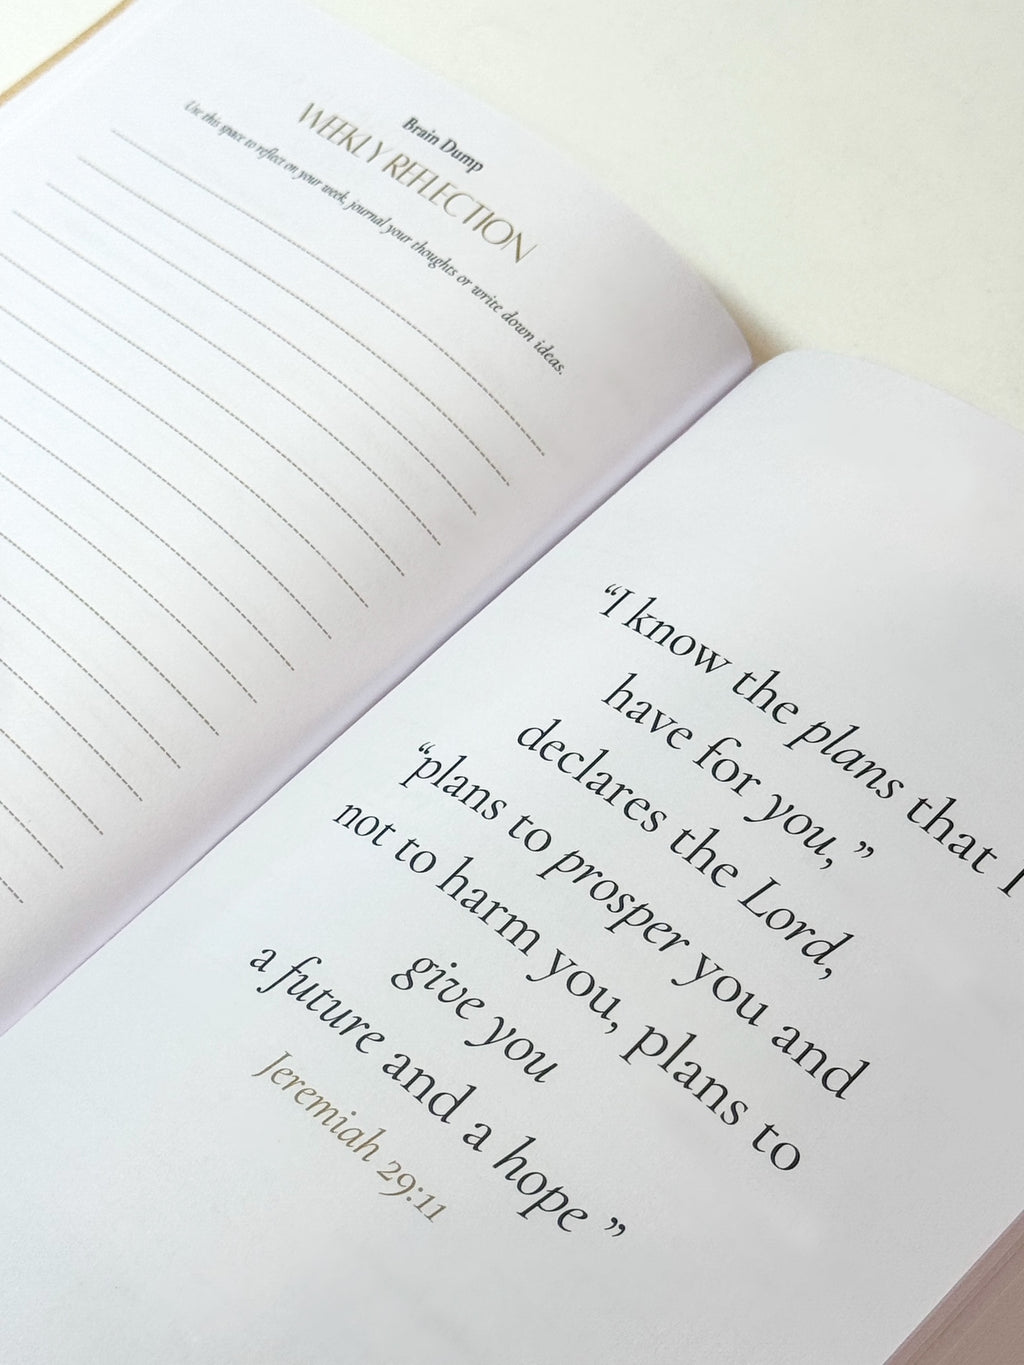 Brain Dump
WEEKLY REFLECTION
Use this space to reflect on your week, journal your thoughts or write down ideas.
“I know the plans that I
have for you,”
declares the Lord,
“plans to prosper you and
not to harm you, plans to
give you
a future and a hope ”
Jeremiah 29:11